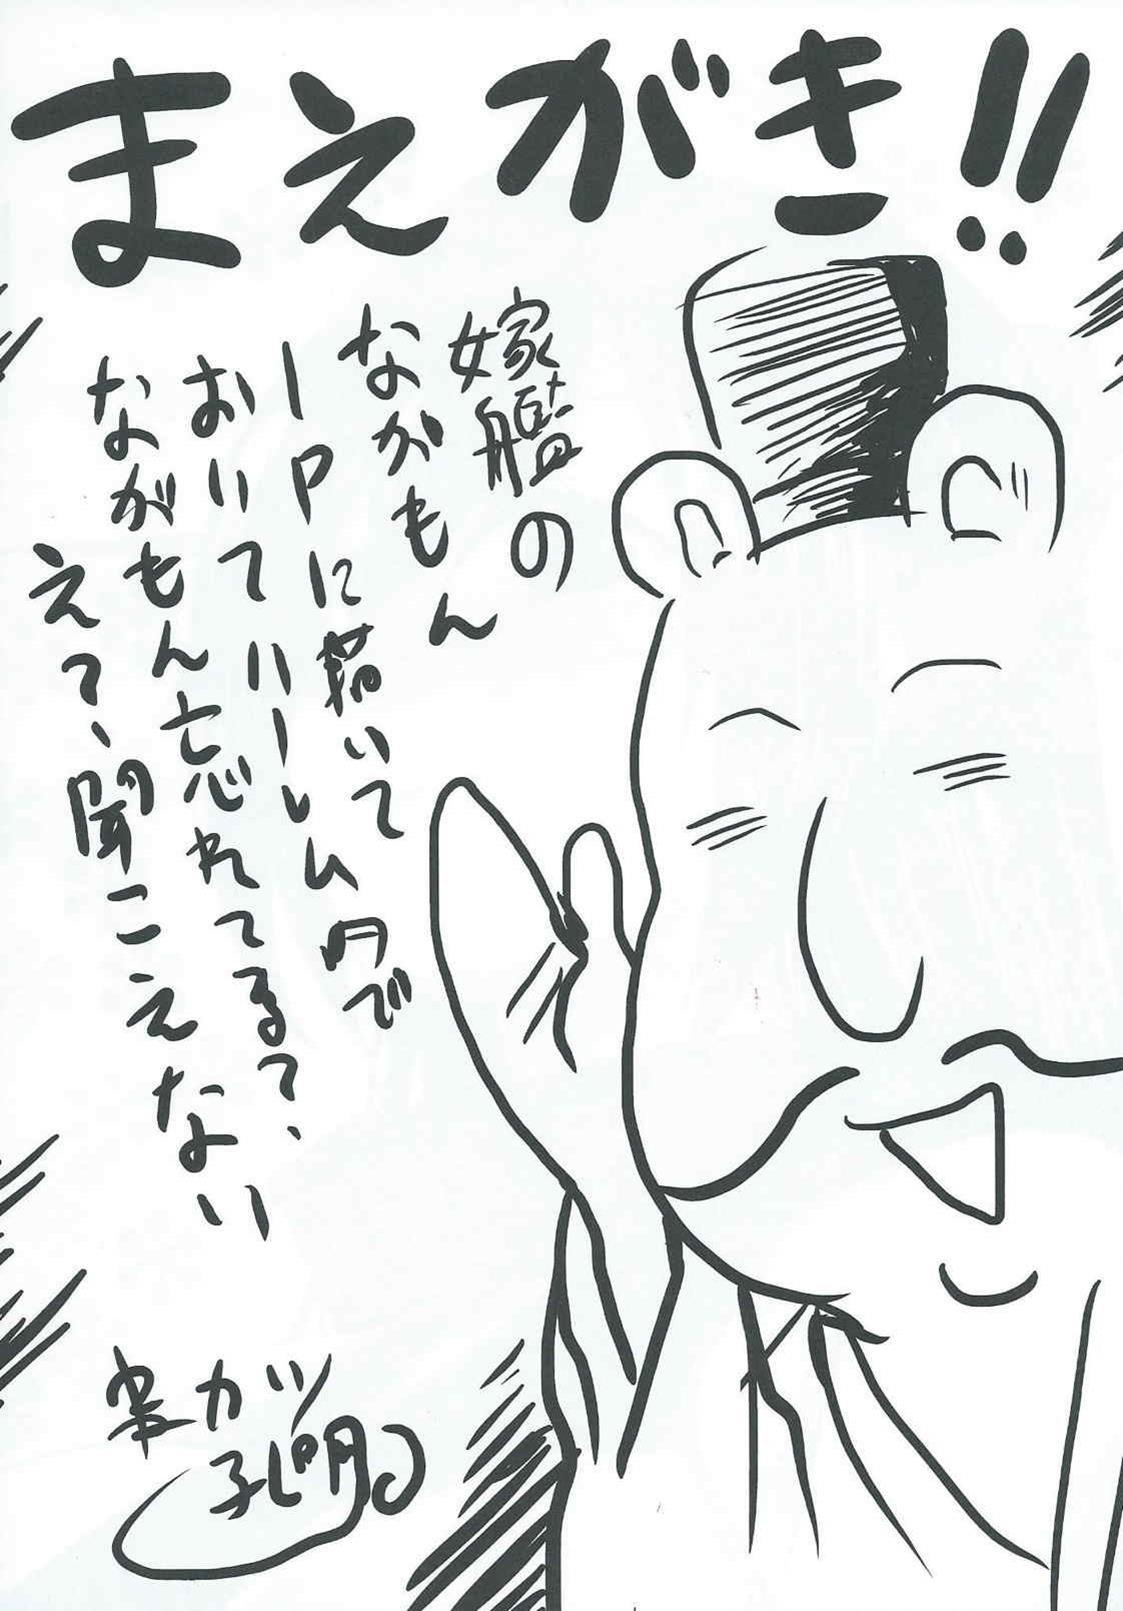 まえがき!!
嫁艦の
ながもん
1Pに描いて
おいてハーレム内で
ながもん忘れてる?、
えて、聞こえない
孔明